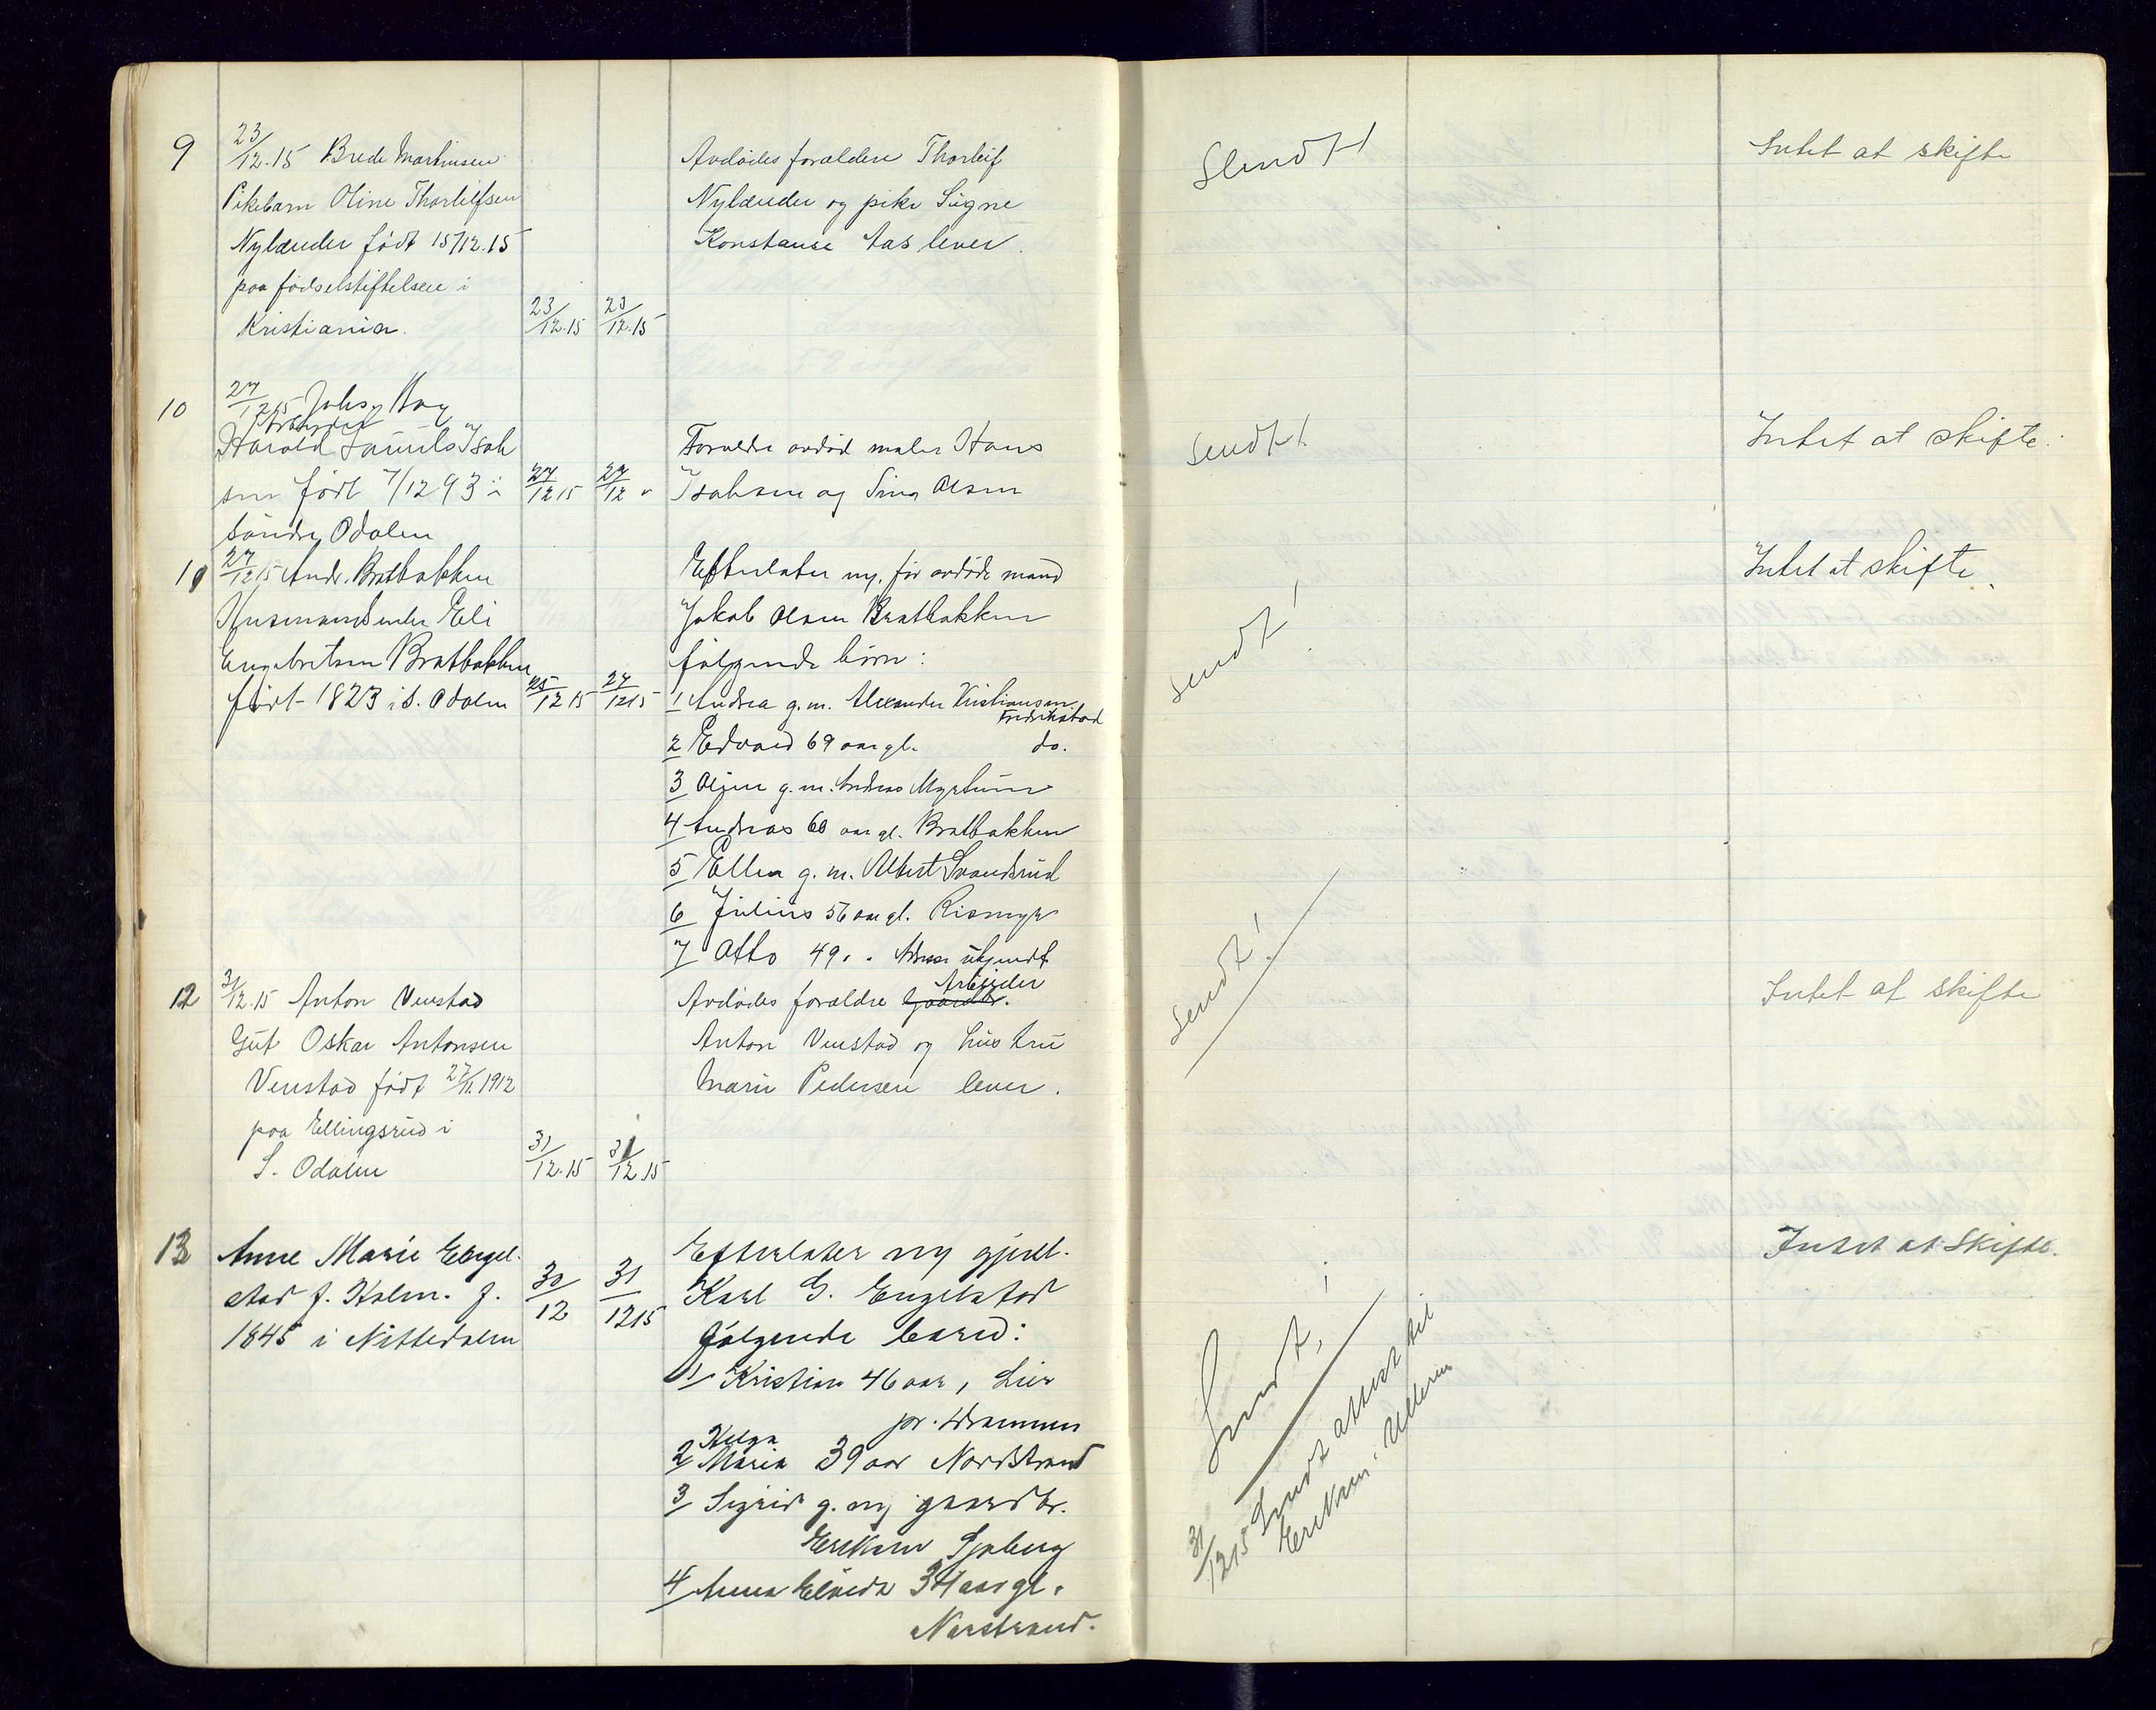 9
23/12.15 Brede Martinsen
Pikebarn Oline Thorleifsen
Nylænder født 15/12.15
paa fødselsstiftelsen i
Kristiania.
23/12.15 23/12.15
Avdødes forældre Thorleif
Nylænder og pike Signe
Konstanse Aas lever.
Sendt!
Intet at skifte
10
27/12 15 Johs. Hag
Arbeider
Harald Laurits Isak
sen født 7/12 93 i
Søndre Odalen
27/12 15 27/12 "
Forældre avdød maler Hans
Isaksen og Sina Olsen
Sendt!
Intet at skifte.
11
27/12 15 Andr. Bratbakken
Husmandsenke Eli
Engebretsen Bratbakken
født 1823 i S. Odalen
25/12 15 27/12 15
Efterlater mg. før avdøde mand
Jakob Olsen Bratbakken
følgende børn:
1 Andrea g.m. Alexander Kristiansen
Fredrikstad
2 Edvard 69 aar gl. do.
3 Oline g.m. Andreas Myrtunn
4 Andreas 60 aar gl. Bratbakken
5 Ellen g.m. Albert Svandsrud
6 Julius 56 aar gl. Rismyr
7 Otto 49 " " Adresse ukjendt
Sendt!
Intet at skifte.
12
31/12.15 Anton Venstad
Gut Oskar Antonsen
Venstad født 27/11.1912
paa Ellingsrud i
S. Odalen
31/12.15 31/12 15
Arbeider
Avdødes forældre Gaardbr.
Anton Venstad og hustru
Marie Pedersen lever.
Sendt!
Intet at skifte
13
Anne Marie Engel-
stad f. Holm. f.
1845 i Nittedalen
30/12 31/12 15
Efterlater mg gjenl.
Karl G. Engelstad
følgende barn:
1/ Kristian 46 aar, Lier
pr. Drammen
Helga
2/ Maria 39 aar Nordstrand
3/ Sigrid g. m. gaardbr.
Eriksen Sjøberg
4/ Anna Elvida 34 aar gl.
Norstrand.
Sendt!
31/12 15 Sendt attest til
Eriksen. Ulleren
Intet at skifte.